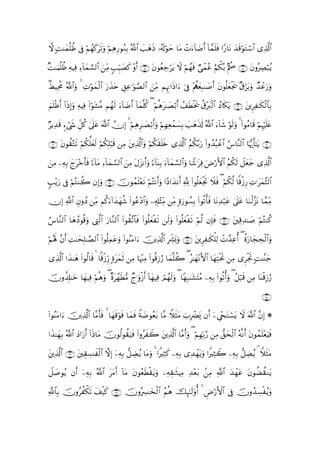 الَّذِي اسْتَوْقَدَ نَارًا فَلَمَّا أَضَاءَتْ مَا حَوْلَهُ ذَهَبَ اللَّهُ بِنُورِهِمْ وَتَرَكَهُمْ فِي ظُلُمَاتٍ لَا
يُبْصِرُونَ صُمٌّ بُكْمٌ عُمْيٌ فَهُمْ لَا يَرْجِعُونَ أَوْ كَصَيِّبٍ مِنَ السَّمَاءِ فِيهِ ظُلُمَاتٌ
وَرَعْدٌ وَبَرْقٌ يَجْعَلُونَ أَصَابِعَهُمْ فِي آذَانِهِمْ مِنَ الصَّوَاعِقِ حَذَرَ الْمَوْتِ وَاللَّهُ مُحِيطٌ
بِالْكَافِرِينَ يَكَادُ الْبَرْقُ يَخْطَفُ أَبْصَارَهُمْ كُلَّمَا أَضَاءَ لَهُمْ مَشَوْا فِيهِ وَإِذَا أَظْلَمَ
عَلَيْهِمْ قَامُوا وَلَوْ شَاءَ اللَّهُ لَذَهَبَ بِسَمْعِهِمْ وَأَبْصَارِهِمْ إِنَّ اللَّهَ عَلَى كُلِّ شَيْءٍ قَدِيرٌ
يَا أَيُّهَا النَّاسُ اعْبُدُوا رَبَّكُمُ الَّذِي خَلَقَكُمْ وَالَّذِينَ مِنْ قَبْلِكُمْ لَعَلَّكُمْ تَتَّقُونَ
الَّذِي جَعَلَ لَكُمُ الْأَرْضَ فِرَاشًا وَالسَّمَاءَ بِنَاءً وَأَنْزَلَ مِنَ السَّمَاءِ مَاءً فَأَخْرَجَ بِهِ مِنَ
الثَّمَرَاتِ رِزْقًا لَكُمْ فَلَا تَجْعَلُوا لِلَّهِ أَنْدَادًا وَأَنْتُمْ تَعْلَمُونَ وَإِنْ كُنْتُمْ فِي رَيْبٍ
مِمَّا نَزَّلْنَا عَلَى عَبْدِنَا فَأْتُوا بِسُورَةٍ مِنْ مِثْلِهِ وَادْعُوا شُهَدَاءَكُمْ مِنْ دُونِ اللَّهِ إِنْ
كُنْتُمْ صَادِقِينَ فَإِنْ لَمْ تَفْعَلُوا وَلَنْ تَفْعَلُوا فَاتَّقُوا النَّارَ الَّتِي وَقُودُهَا النَّاسُ
وَالْحِجَارَةُ أُعِدَّتْ لِلْكَافِرِينَ وَبَشِّرِ الَّذِينَ آمَنُوا وَعَمِلُوا الصَّالِحَاتِ أَنَّ لَهُمْ
جَنَّاتٍ تَجْرِي مِنْ تَحْتِهَا الْأَنْهَارُ كُلَّمَا رُزِقُوا مِنْهَا مِنْ ثَمَرَةٍ رِزْقًا قَالُوا هَذَا الَّذِي
رُزِقْنَا مِنْ قَبْلُ وَأُتُوا بِهِ مُتَشَابِهًا وَلَهُمْ فِيهَا أَزْوَاجٌ مُطَهَّرَةٌ وَهُمْ فِيهَا خَالِدُونَ

إِنَّ اللَّهَ لَا يَسْتَحْيِي أَنْ يَضْرِبَ مَثَلًا مَا بَعُوضَةً فَمَا فَوْقَهَا فَأَمَّا الَّذِينَ آمَنُوا
فَيَعْلَمُونَ أَنَّهُ الْحَقُّ مِنْ رَبِّهِمْ وَأَمَّا الَّذِينَ كَفَرُوا فَيَقُولُونَ مَاذَا أَرَادَ اللَّهُ بِهَذَا
مَثَلًا يُضِلُّ بِهِ كَثِيرًا وَيَهْدِي بِهِ كَثِيرًا وَمَا يُضِلُّ بِهِ إِلَّا الْفَاسِقِينَ الَّذِينَ
يَنْقُضُونَ عَهْدَ اللَّهِ مِنْ بَعْدِ مِيثَاقِهِ وَيَقْطَعُونَ مَا أَمَرَ اللَّهُ بِهِ أَنْ يُوصَلَ
وَيُفْسِدُونَ فِي الْأَرْضِ أُولَئِكَ هُمُ الْخَاسِرُونَ كَيْفَ تَكْفُرُونَ بِاللَّهِ